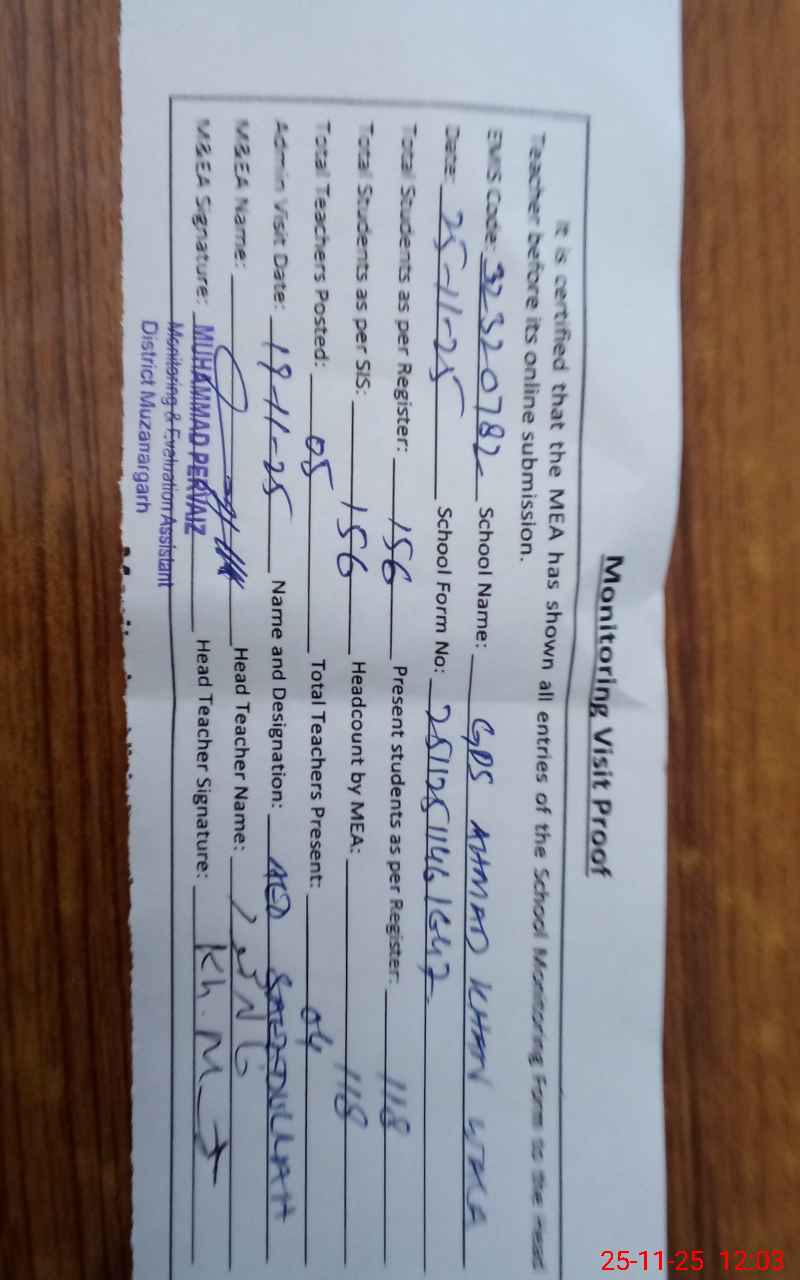 Monitoring Visit Proof
It is certified that the MEA has shown all entries of the School Monitoring Form to the Head
Teacher before its online submission.
EMIS Code: 32320782 School Name: GPS AHMAD KHAN
Date: 25-11-25 School Form No: 25112511461647
Total Students as per Register: 156 Present students as per Register: 118
Total Students as per SIS: 156 Headcount by MEA: 118
Total Teachers Posted: 05 Total Teachers Present: 04
Admin Visit Date: 19-11-25 Name and Designation: AEO
M&EA Name: Head Teacher Name:
M&EA Signature: MUHAMMAD PERVAIZ Head Teacher Signature: Kh.
Monitoring & Evaluation Assistant
District Muzaffargarh
25-11-25 12:03